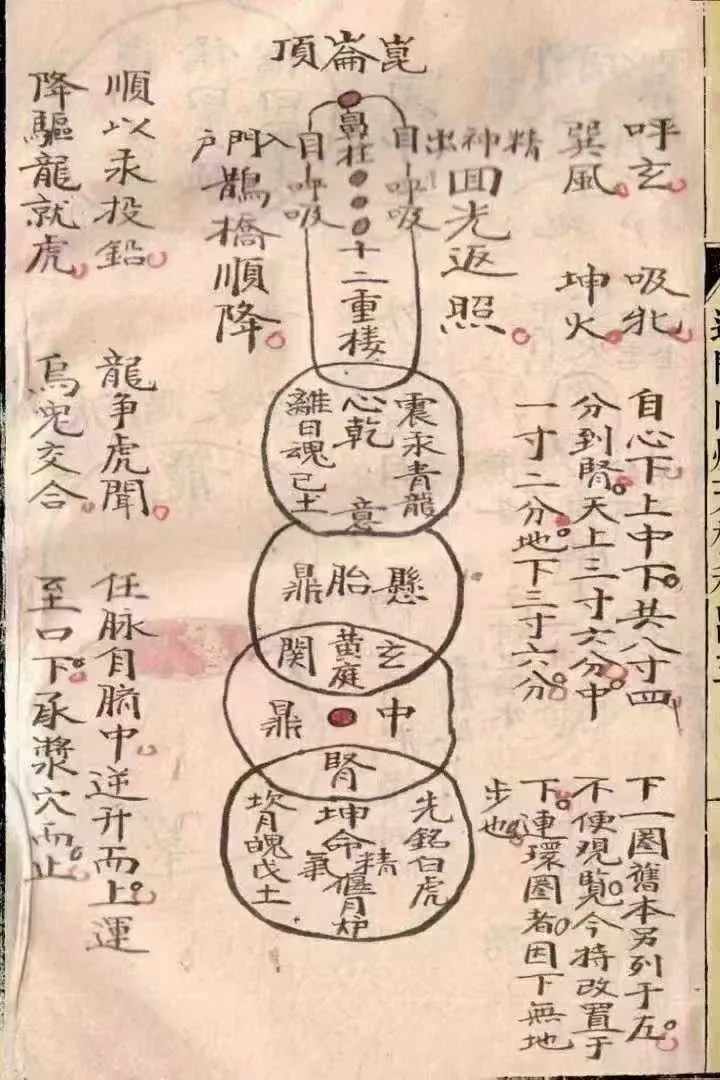 崑崙頂
呼玄
巽風
吸牝
坤火
精神出
自呼吸
回光返照
鼻柱
十二重楼
自呼吸
入門户
鵲橋順降
順以汞投鉛
降驅龍就虎
自心下上中下共八寸四
分到腎天上三寸六分中
一寸二分地下三寸六分
震汞青龍
心乾
意
離日魂己土
龍争虎聞
烏兎交合
懸胎鼎
玄黄庭関
中鼎
腎
任脉自臍中逆升而上運
至口下承漿穴而止
白虎
坤命
精
氣
偃月炉
坎月魄戊土
下一圈舊本另列于左
不便观覧今特改置于
下連環圈者因下無地
步也